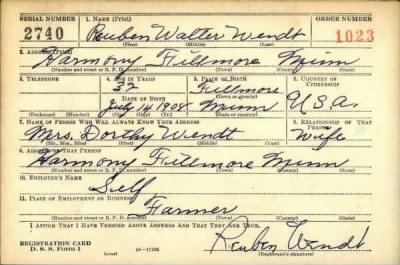 SERIAL NUMBER 1. NAME (Print) ORDER NUMBER
2740 Reuben Walter Wendt 1023
(First) (Middle) (Last)
2. ADDRESS (Print)
Harmony Fillmore Minn
(Number and street or R. F. D. number) (Town) (County) (State)
3. TELEPHONE 4. AGE IN YEARS 5. PLACE OF BIRTH 6. COUNTRY OF CITIZENSHIP
32 Fillmore
DATE OF BIRTH (Town or county)
July 14 1908 Minn U.S.A.
(Exchange) (Number) (Mo.) (Day) (Yr.) (State or country)
7. NAME OF PERSON WHO WILL ALWAYS KNOW YOUR ADDRESS 8. RELATIONSHIP OF THAT PERSON
Mrs. Dorthy Wendt Wife
(Mr., Mrs., Miss) (First) (Middle) (Last)
9. ADDRESS OF THAT PERSON
Harmony Fillmore Minn
(Number and street or R. F. D. number) (Town) (County) (State)
10. EMPLOYER'S NAME
Self
11. PLACE OF EMPLOYMENT OR BUSINESS
Farmer
(Number and street or R. F. D. number) (Town) (County) (State)
I AFFIRM THAT I HAVE VERIFIED ABOVE ANSWERS AND THAT THEY ARE TRUE.
REGISTRATION CARD
D. S. S. Form 1 (over) 16-17105 Reuben Wendt
(Registrant's signature)